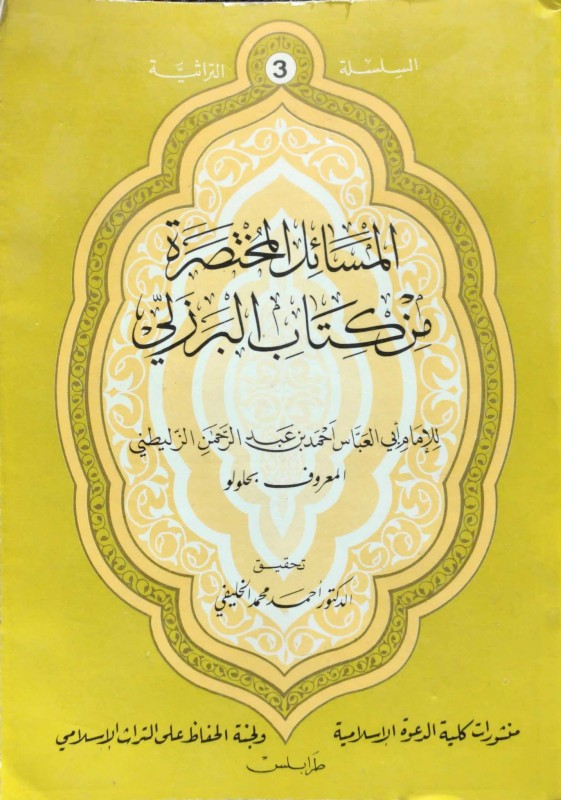 السلسلة 3 التراثية
المسائل المختصرة
من كتاب البرزلي
للإمام أبي العباس أحمد بن عبد الرحمن الزليطني
المعروف بحلولو
تحقيق
الدكتور أحمد محمد الخليفي
منشورات كلية الدعوة الإسلامية ولجنة الحفاظ على التراث الإسلامي
طرابلس